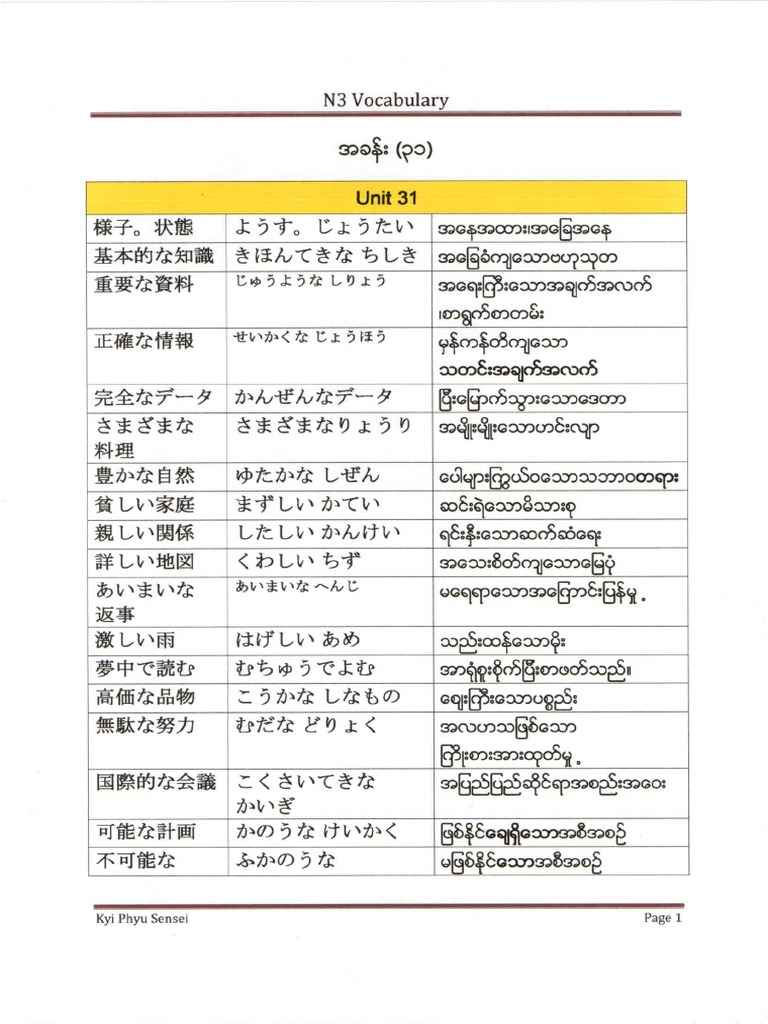 N3 Vocabulary
အခန်း (၃၁)
Unit 31
様子。状態 ようす。じょうたい အနေအထား၊အခြေအနေ
基本的な知識 きほんてきな ちしき အခြေခံကျသောဗဟုသုတ
重要な資料 じゅうような しりょう အရေးကြီးသောအချက်အလက်
၊စာရွက်စာတမ်း
正確な情報 せいかくな じょうほう မှန်ကန်တိကျသော
သတင်းအချက်အလက်
完全なデータ かんぜんなデータ ပြီးမြောက်သွားသောဒေတာ
さまざまな さまざまなりょうり အမျိုးမျိုးသောဟင်းလျာ
料理
豊かな自然 ゆたかな しぜん ပေါများကြွယ်ဝသောသဘာဝတရား
貧しい家庭 まずしい かてい ဆင်းရဲသောမိသားစု
親しい関係 したしい かんけい ရင်းနှီးသောဆက်ဆံရေး
詳しい地図 くわしい ちず အသေးစိတ်ကျသောမြေပုံ
あいまいな あいまいな へんじ မရေရာသောအကြောင်းပြန်မှု့
返事
激しい雨 はげしい あめ သည်းထန်သောမိုး
夢中で読む むちゅうでよむ အာရုံစူးစိုက်ပြီးစာဖတ်သည်။
高価な品物 こうかな しなもの ဈေးကြီးသောပစ္စည်း
無駄な努力 むだな どりょく အလဟသဖြစ်သော
ကြိုးစားအားထုတ်မှု့
国際的な会議 こくさいてきな အပြည်ပြည်ဆိုင်ရာအစည်းအဝေး
かいぎ
可能な計画 かのうな けいかく ဖြစ်နိုင်ချေရှိသောအစီအစဉ်
不可能な ふかのうな မဖြစ်နိုင်သောအစီအစဉ်
Kyi Phyu Sensei Page 1